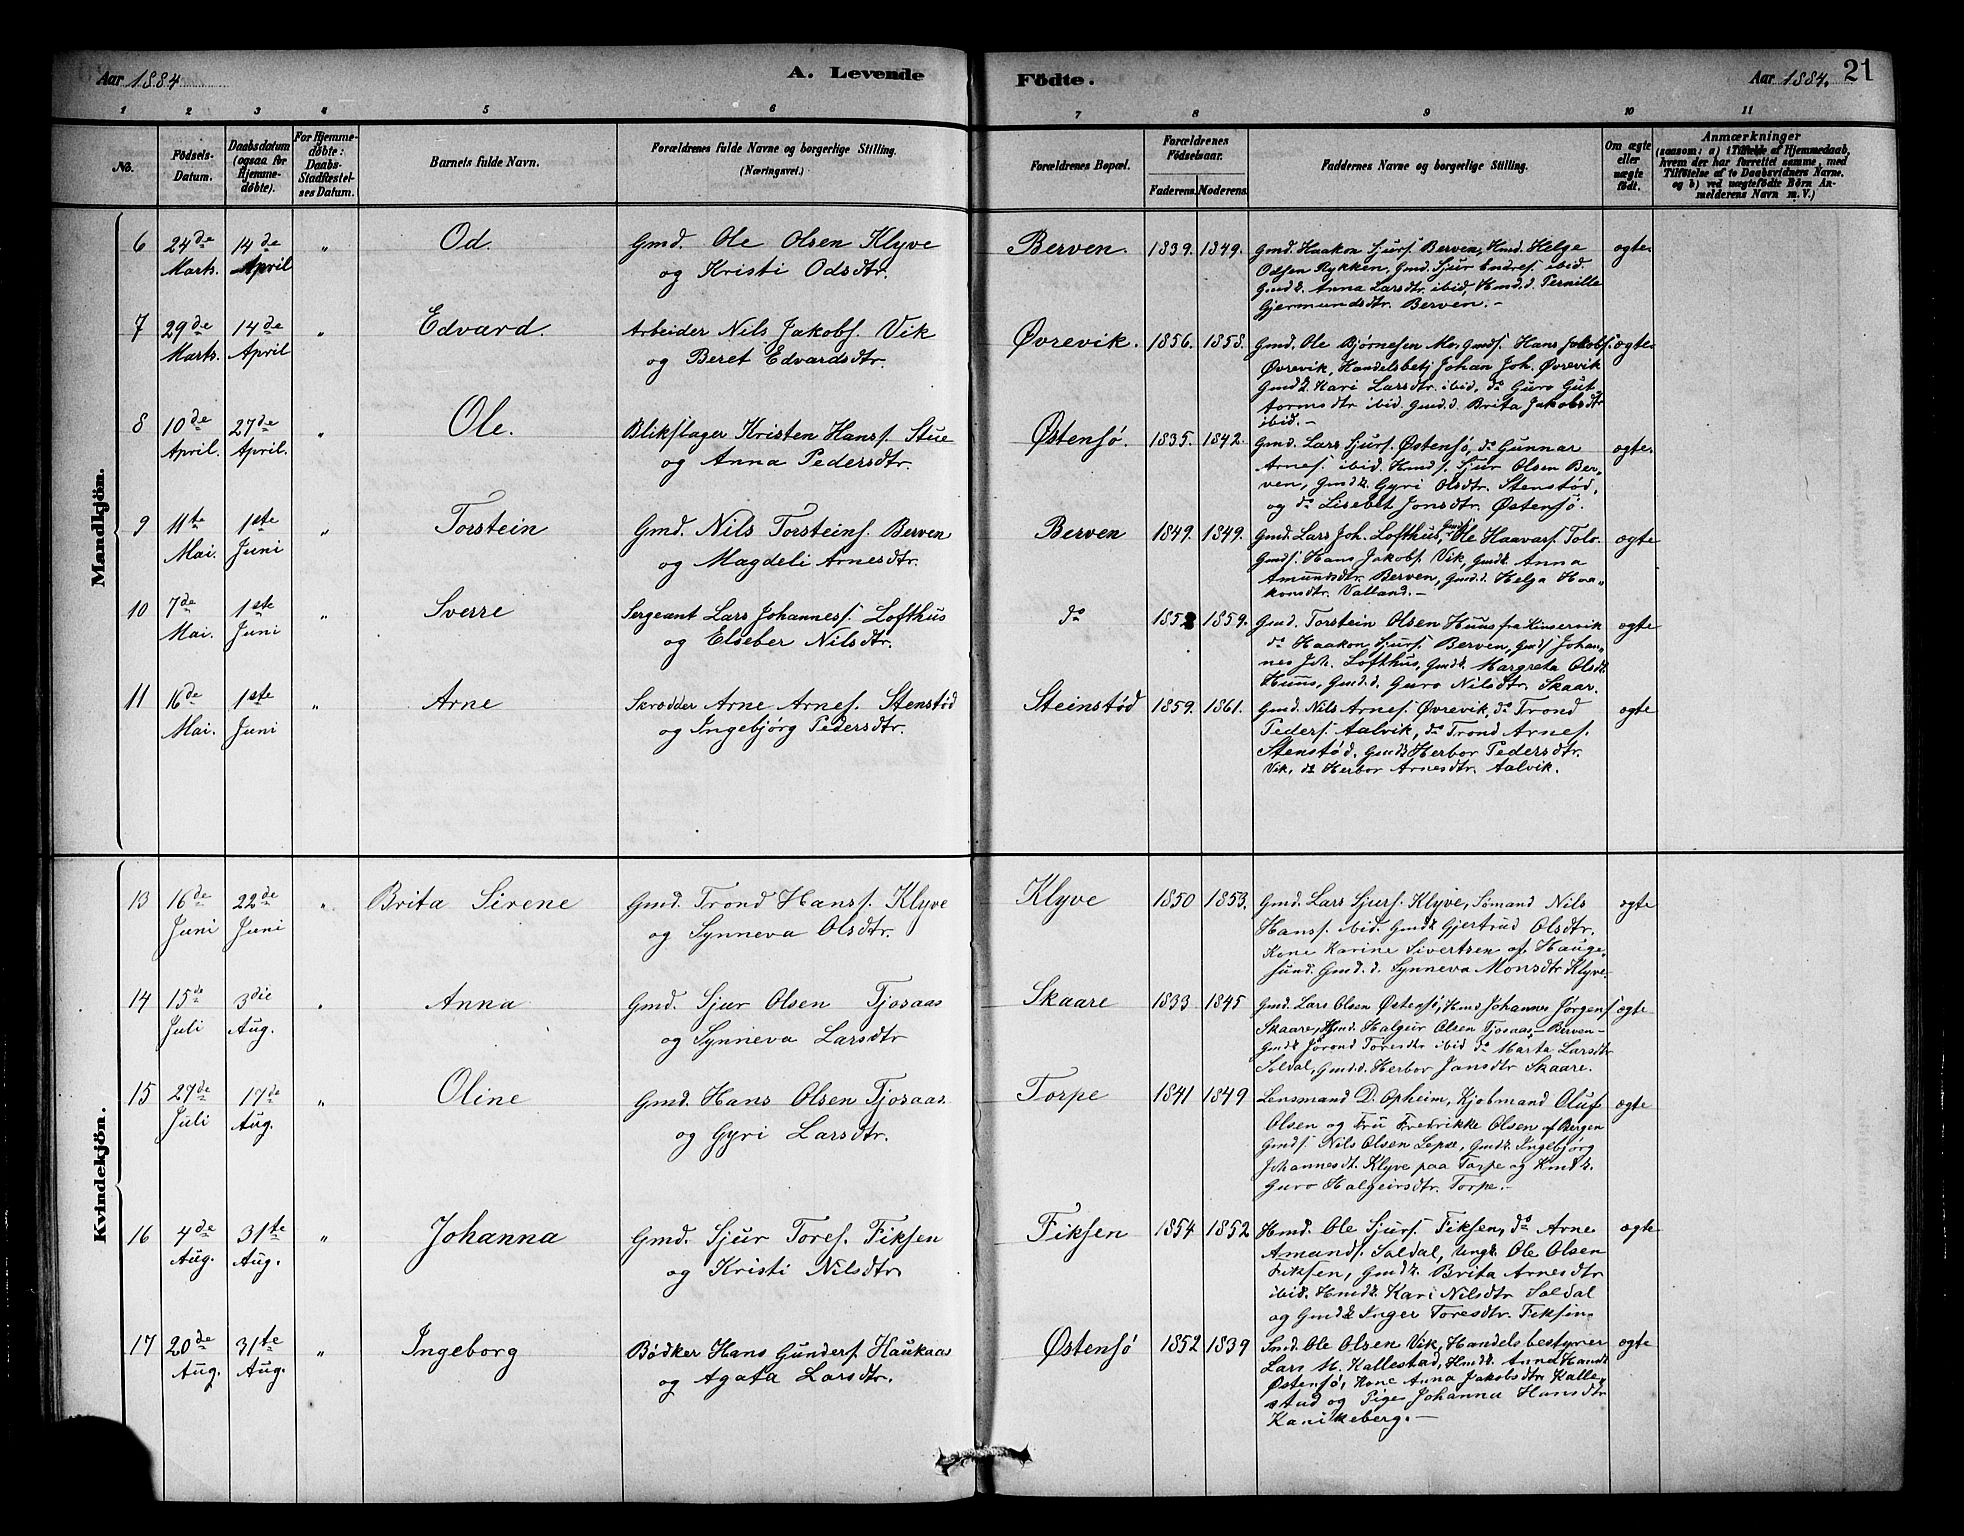 Aar 1884
A. Levende
Födte.
Aar 1884.
21
1 2 3 4 5 6 7 8 9 10 11
No.
Födsels-
Datum.
Daabsdatum
(ogsaa for
Hjemme-
döbte).
For Hjemme-
døbte:
Daabs-
Stadfæstel-
ses Datum.
Barnets fulde Navn.
Forældrenes fulde Navne og borgerlige Stilling.
(Næringsvei.)
Forældrenes Bopæl.
Forældrenes
Födselsaar.
Faderens. Moderens.
Faddernes Navne og borgerlige Stilling.
Om ægte
eller
uægte
födt.
Anmærkninger
(saasom: a) i Tilfælde af Hjemmedaab,
hvem der har forrettet samme, med
Tilföielse af to Daabsvidners Navne.
og b) ved uægtefödte Börn An-
melderens Navn m. V.)
Mandkjön.
6 24de Marts. 14de April " Od. Gmd. Ole Olsen Klyve
og Kristi Odsdtr.
Berven. 1839. 1849. ægte.
Gmd. Haakon Sjurs. Berven, Kmd. Helge
Odsen Rykken, Gmd. Sjur Endres. ibid
Gmdk. Anna Larsdtr. ibid, Kmd.d. Pernille
Gjermundsdtr. Berven.-
7 29de Marts. 14de April " Edvard Arbeider Nils Jakobs. Vik
og Beret Edvardsdtr.
Øvrevik. 1856. 1858. ægte.
Gmd. Ole Bjørnesen Mo, Gmds. Hans Jakobs.
Øvrevik, Handelsbetj. Johan Joh. Øvrevik
Gmdk. Kari Larsdtr. ibid, do Guro Gut
tormsdtr ibid. Gmd.d. Brita Jakobsdtr
ibid.-
8 10de April. 27de April. " Ole. Blikslager Kristen Hans. Stue
og Anna Pedersdtr.
Østensø 1835. 1842. ægte.
Gmd. Lars Sjurs. Østensø, do Gunnar
Arnes. ibid. Kmds. Sjur Olsen Ber-
ven, Gmdk. Gyri Olsdtr. Stenstød,
og do Lisebet Jonsdtr. Østensø.
9 11te Mai. 1ste Juni " Torstein Gmd. Nils Torsteins. Berven
og Magdeli Arnesdtr.
Berven 1849. 1849. ægte
Gmd. Lars Joh. Lofthus, Gmds. Ole Haavars. Tolo.
Gmds. Hans Jakobs. Vik, Gmdk. Anna
Amundsdtr. Berven, Gmd.d. Helga Haa-
konsdtr. Valland.-
10 7de Mai. 1ste Juni " Sverre Sergeant Lars Johannes. Lofthus
og Elseber Nilsdtr.
do 1859. ægte
Gmd. Torstein Olsen Huus fra Kinservik
do Haakon Sjurs. Berven, Gmds. Johan-
nes Joh. Lofthus, Gmdk. Margreta Olsdt.
Huus, Gmd.d. Guro Nilsdtr. Skaar.
11 16de Mai. 1ste Juni " Arne Skrædder Arne Arnes. Stenstød
og Ingebjørg Pedersdtr.
Steinstød 1859. 1861. ægte
Gmd. Nils Arnes. Øvrevik, do Trond
Peders. Aalvik, do Trond Arnes.
Stenstød. Gmdk. Herbor Pedersdtr.
Vik, do Herbor Arnesdtr. Aalvik.
Kvindekjön.
13 16de Juni 22de Juni " Brita Sirene Gmd. Trond Hans. Klyve
og Synneva Olsdtr.
Klyve 1850 1853. ægte
Gmd. Lars Sjurs. Klyve, Sømand Nils
Hans. ibid. Gmdk. Gjertrud Olsdtr.
Kone Karine Sivertsen af Hauge-
sund. Gmd.d. Synneva Monsdtr Klyve.
14 15de Juli 3die Aug. " Anna Gmd. Sjur Olsen Tjosaas
og Synneva Larsdtr
Skaare 1833 1845 ægte
Gmd. Lars Olsen Østensø, Kmd Johannes Jørgens.
Skaare, Gmd. Halgeir Olsen Tjosaas - Berven -
Gmdk. Jorond Toresdtr ibid do Märta Larsdtr
Soldal, Gmd.d. Herbor Jansdtr Skaare.
15 27de Juli 17de Aug. " Oline Gmd. Hans Olsen Tjosaas
og Gyri Larsdtr.
Torpe 1841 1849 ægte
Lensmand D. Opheim, Kjøbmand Oluf
Olsen og Fru Fredrikke Olsen af Bergen
Gmds. Nils Olsen Lepse, Gmdk. Ingebjörg
Johannesdt. Klyve paa Torpe og Kmdk.
Guro Halgeirsdtr. Torpe.-
16 4de Aug. 31te Aug. " Johanna Gmd. Sjur Tores. Fiksen
og Kristi Nilsdtr
Fiksen 1854 1852 ægte
Kmd. Ole Sjurs. Fiksen, do Arne
Amands. Soldal, Ungk. Ole Olsen
Fiksen, Gmdk. Brita Arnesdtr
ibid. Kmdk. Kari Nilsdtr Soldal
og Gmdk. Inger Toresdtr. Fiksen.
17 20de Aug. 31te Aug. " Ingeborg Bødker Hans Gunders. Haukaas
og Agata Larsdtr.
Østensø 1852 1839 ægte
Smd. Ole Olsen Vik, Handelsbestyrer
Lars M. Kallestad, Kmdk. Anna Hansdt.
Østensø, Kone Anna Jakobsdtr Kalle-
stad og Pige Johanna Hansdtr
Kanikeberg.-